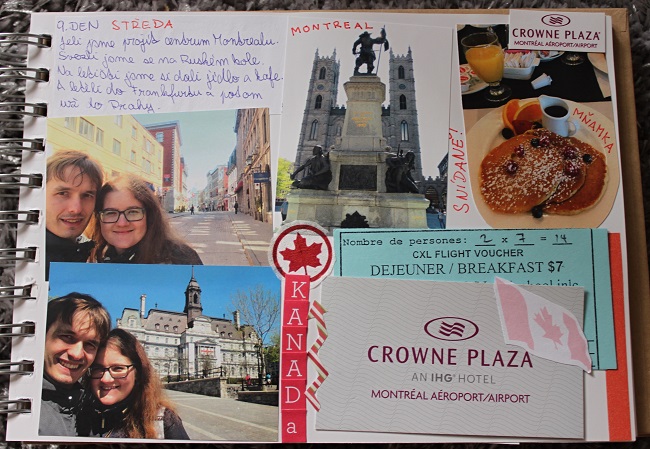 9. DEN STŘEDA
Jeli jsme projít centrum Montrealu.
Svezli jsme se na Ruském kole.
Na letišti jsme si dali jídlo a kafe.
A letěli do Frankfurtu a potom
už do Prahy.
MONTREAL
CROWNE PLAZA
MONTRÉAL AÉROPORT/AIRPORT
SNÍDANĚ!
MŇAMKA
KANADa
Nombre de persones: 2 x 7 = 14
CXL FLIGHT VOUCHER
DEJEUNER / BREAKFAST $7
CROWNE PLAZA
AN IHG HOTEL
MONTRÉAL AÉROPORT/AIRPORT